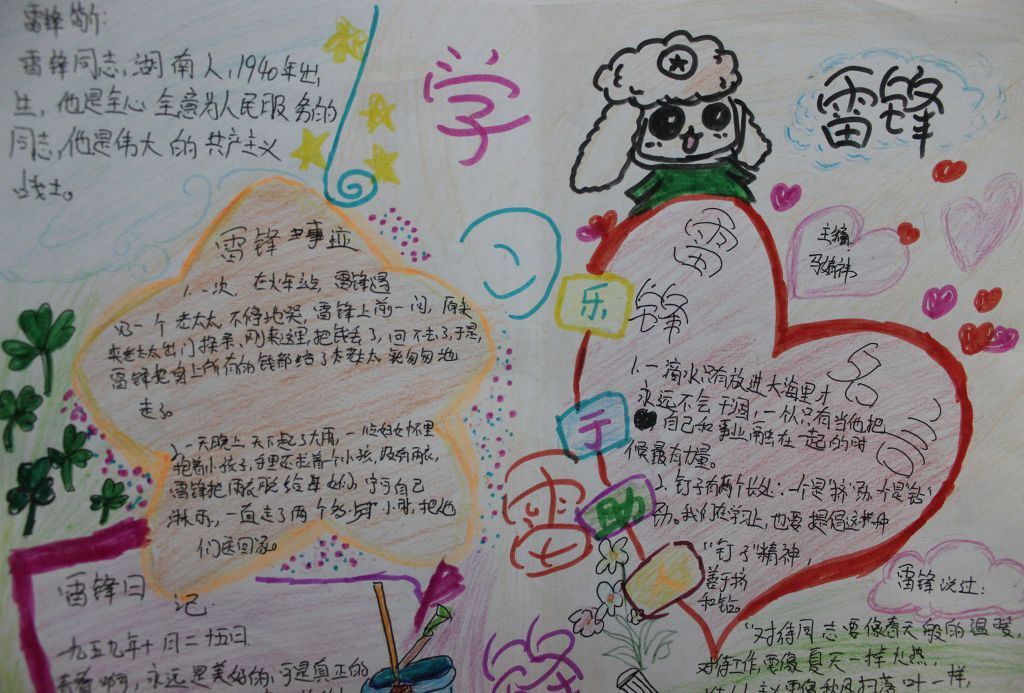 雷锋简介:
雷锋同志,湖南人,1940年出
生,他是全心全意为人民服务的
同志,他是伟大的共产主义
战士。
学
习
雷
锋
雷锋
王
雷锋事迹
1.一次,在火车站,雷锋遇
见一个老太太不停地哭,雷锋上前一问,原来
老太太出门探亲,刚来这里,把钱丢了,回不去了,于是,
雷锋把身上所有的钱都给了老太太,就匆匆地
走了。
2.一天晚上,天下起了大雨,一位妇女怀里
抱着小孩子,手里还拉着个小孩,没有雨衣,
雷锋把雨衣脱给母女们,宁可自己
淋雨,一直走了两个多小时,把他
们送回家。
雷锋日
记
一九五九年十月二十五日
青春啊,永远是美好的,可是真正的
乐
于
助
人
雷
锋
名
言
1.一滴水只有放进大海里才
永远不会干涸,一个人只有当他把
自己和事业融在一起的时
候最有力量。
2.钉子有两个长处:一个是"挤"劲,一个是"钻"
劲。我们在学习上,也要提倡这种
"钉子"精神,
善于挤
和钻。
雷锋说过:
"对待同志要像春天般的温暖,
对待工作,要像夏天一样火热,
要像秋风扫落叶一样,